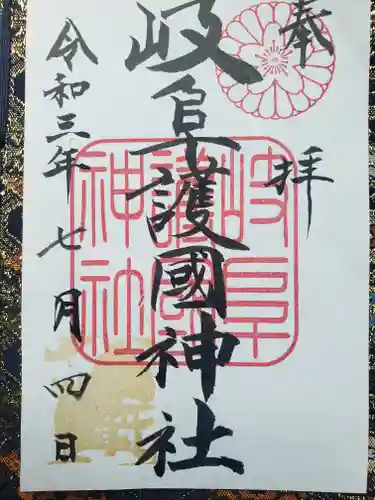 奉拝
岐阜護國神社
令和三年七月四日
岐阜
護國
神社